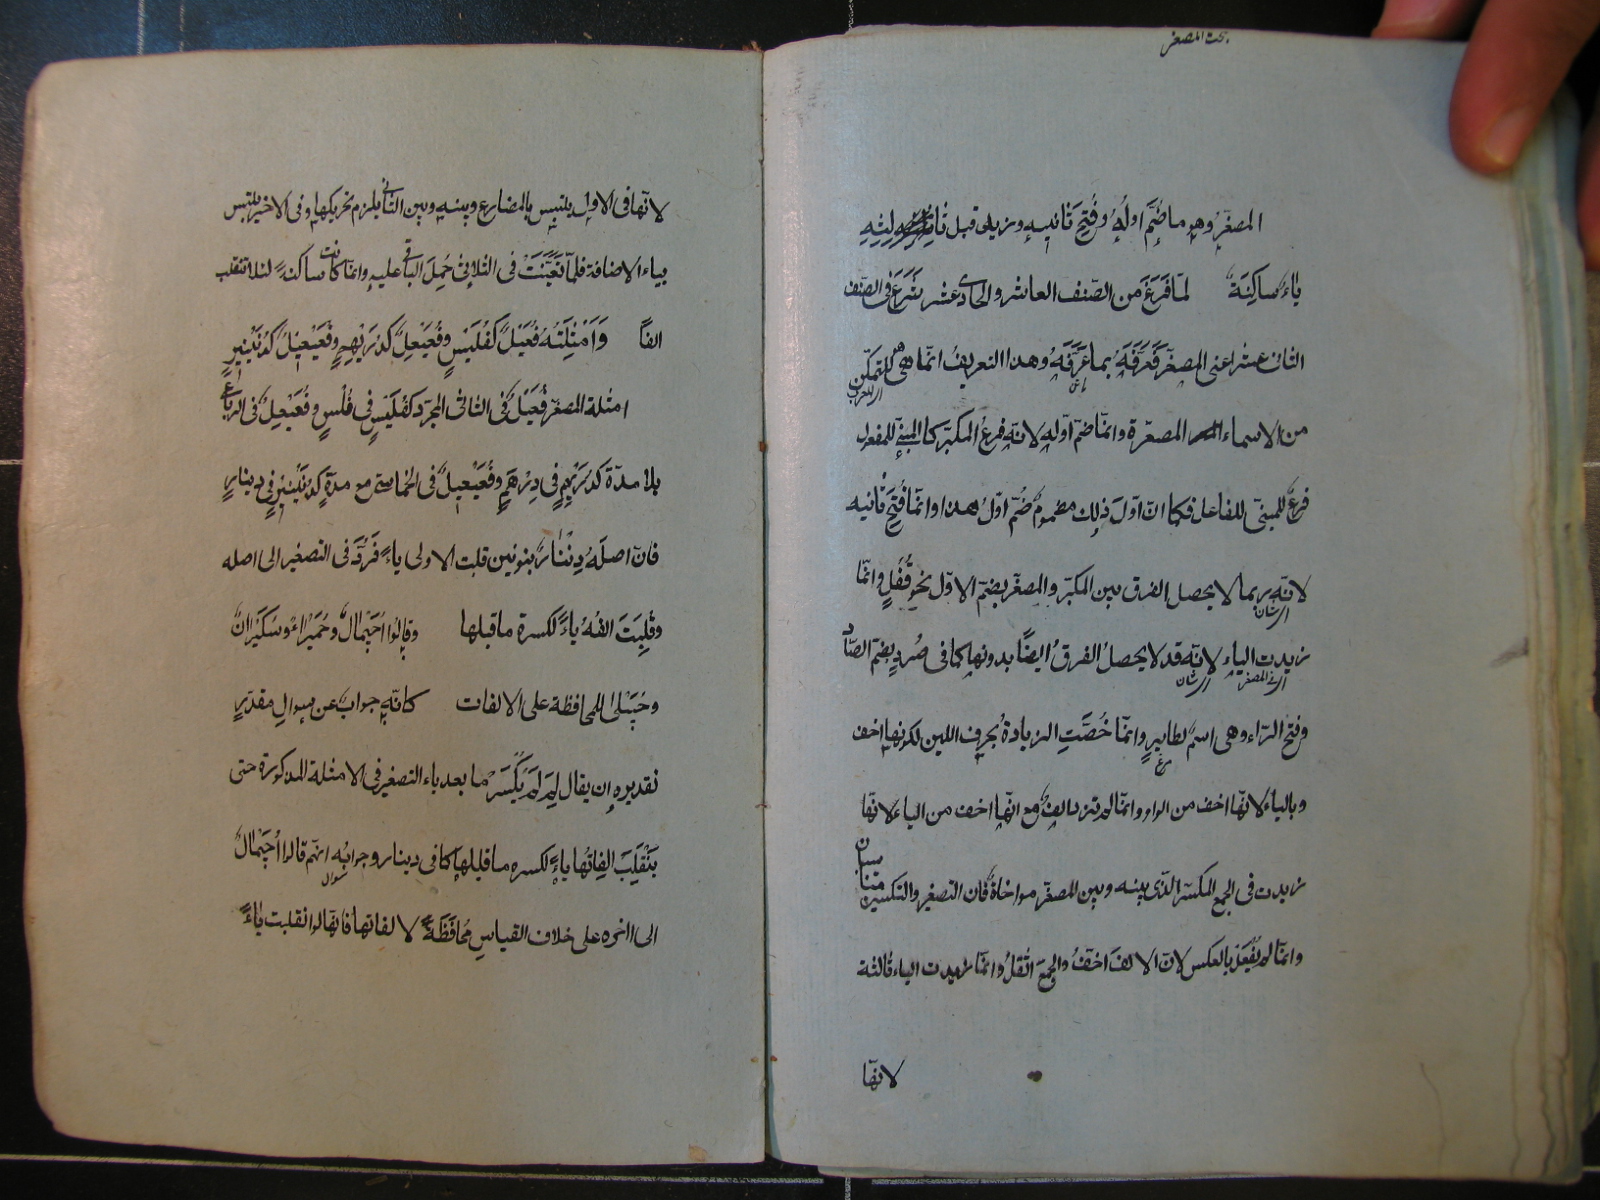 بحث المصغر
المصغّر وهو ما ضُمَّ اولُه وفُتِحَ ثانيه وزيد قبل ثالثه
ياءٌ ساكِنَة لما فَرَغَ من الصّنف العاشر والحادى عشر شَرَعَ فى الصّنف
الثانى عشر اعنى المصغّر فَعَرَّفَهُ بما عَرَّفَهُ وهذا التعريفُ انّما هو للمتمكن
اى المعرب
من الاسماء المصغّرة وانّما ضمّ اوّله لانّه فرع المكبّر كما المبنى للمفعول
فرعٌ للمبنى للفاعل فكما انّ اوّلَ ذٰلك مضمومٌ ضُمّ اوّلُ هذا وانّما فُتِحَ ثانيه
لانّه ربما لا يحصل الفرق بين المكبّر والمصغّر بضمّ الاوّل نحو قُفُلٍ وانّما
اى الشان
زيدت الياء لانّه قد لا يحصلُ الفرقُ ايضًا بدونها كما فى صُرَدٍ بضمّ الصّاد
اى فى المصغر اى الشان
وفتح الرّاء وهى اسمٌ لطايرٍ وانّما خُصَّتِ الزيادةُ بحرف اللين لكونها اخف
وبالياء لانّها اخف من الواو وانّما لم تزد الفٌ مع انّها اخف من الياء لانّها
زيدت فى الجمع المكسّر الّذى بينه وبين المصغّر مواخاةٌ فان التصغير والتكسير متناسبان
وانّما لم يُفعَل بالعكس لانّ الالفَ اخفُّ والجمعَ اثقلُ وانّما زيدت الياء ثالثة
لانّها
لانّها فى الاول يلتبس بالمضارع وبينه وبين الثانى يلزم تحريكها وفى الاخير يلتبس
بياء الاضافة فلمّا تَعَيَّنَتْ فى الثلاثى حُمِلَ الباقى عليه وانّما كانت ساكنةً لئلا تنقلب
الفًا وَاَمْثِلَتُهُ فُعَيْلٌ كَفُلَيْسٍ وفُعَيْعِلٌ كدُرَيْهِمٍ وفُعَيْعِيلٌ كدُنَيْنِيرٍ
امثلة المصغّر فُعَيْلٌ فى الثلاثى المجرّد كفُلَيْسٍ فى فُلْسٍ وفُعَيْعِلٌ فى الرباعى
بلا مدّة كدُرَيْهِمٍ فى دِرْهَمٍ وفُعَيْعِيلٌ فى الخماسى مع مدةٍ كدُنَيْنِيرٍ فى دينارٍ
فانّ اصلَهُ دِنْنَارٌ بنونين قلبت الاولى ياءً فَرُدَّ فى التصغير الى اصله
وقُلِبَتَ الفُهُ ياءً لكسرة ما قبلها وقالوا أُجَيْمالٌ وحُمَيْراءُ وسُكَيْرانُ
وحُبَيْلىٰ للمحافظة على الالفات كانّه جوابٌ عن سوالٍ مقدّرٍ
تقديره ان يقال لِمَ لَمْ يُكْسَرْ ما بعد ياء التصغير فى الامثلة المذكورة حتى
يَنْقَلِبَ الِفاتُها ياءً لكسره ما قبلها كما فى دينار وجوابُه انّهم قالوا أُجَيْمالٌ
سوال
الى اخره على خلاف القياسِ مُحافَظَةً لالفاتها فانّها لو انقلبت ياءً